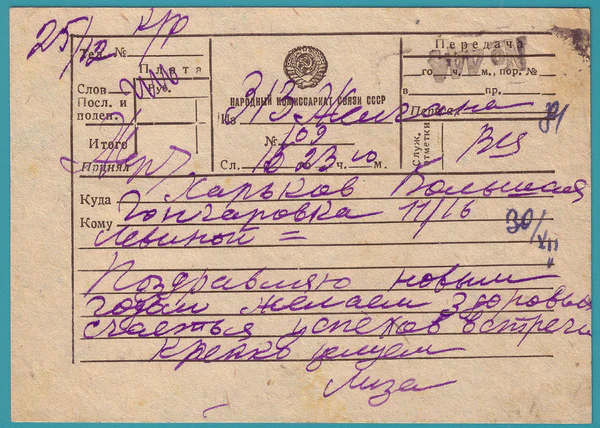 25/12
Тел. №
Плата
Передача
Слов
Руб.
го ч. м., пор. №
в пр.
Посл. и
поден.
НАРОДНЫЙ КОМИССАРИАТ СВЯЗИ СССР
Из 313
Передал
Итого
№ 109
Служ.
отметки
Принял
Сл. 16 23 ч. 10 м.
Куда Харьков Большая
Кому Гончаровка 11/16
30/XII
Левиной =
Поздравляю новым
годом желаем здоровья
счастья успехов встречи
Крепко целуем
Лиза